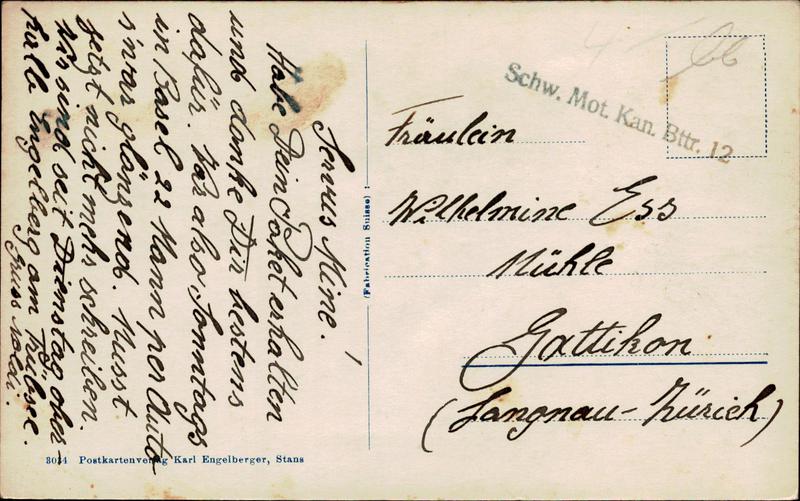 Servus Mine!
Habe Dein Paket erhalten
und danke Dir bestens
dafür. War also Sonntags
in Basel 22 Mann per Auto
s'war glänzend. Musst
jetzt nicht mehr schreiben.
Wir sind seit Dienstag ober-
halb Engelberg am Trübsee.
Gruss
(Fabrication Suisse)
3034 Postkartenverlag Karl Engelberger, Stans
Schw. Mot. Kan. Bttr. 12
Fräulein
Wilhelmine Ess
Mühle
Gattikon
(Langnau-Zürich)